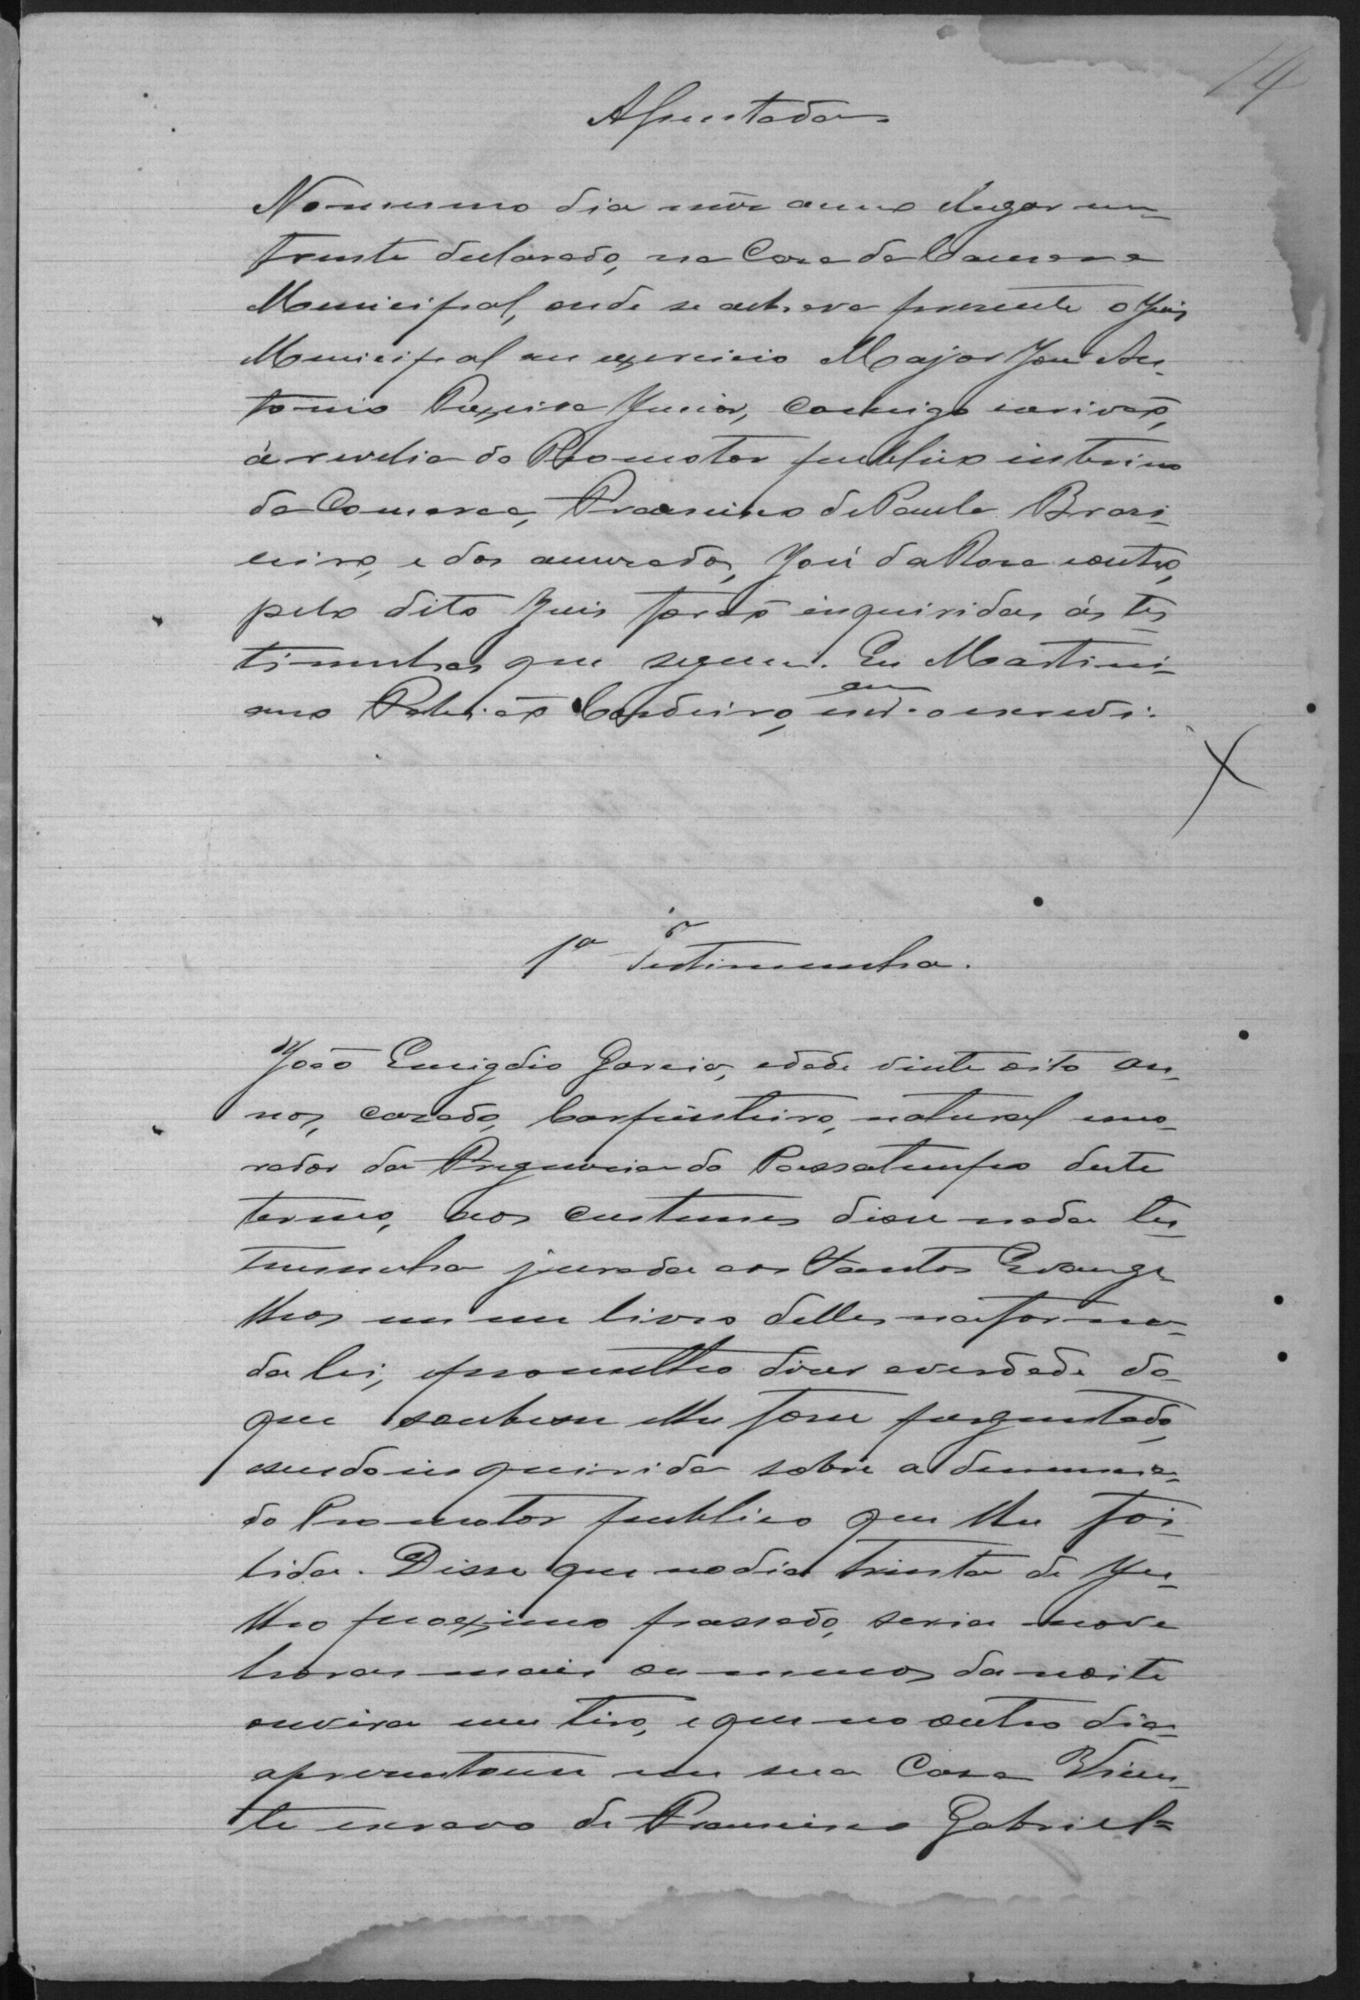 14
Assentada
No mesmo dia mês anno e lugar re-
tro declarado, na Casa da Camara
Municipal, onde se achava presente o Juis
Municipal em exercicio Major José An-
tonio Junior, comigo escrivão,
á revelia do Promotor publico interino
da Comarca, Francisco de Paula
e dos accusados, José da Rosa e outro,
pelo dito Juis forão inqueridas ás tes-
timunhas que seguem. Eu Martini-
ano Cordeiro, escrivão o escrevi.
1ª Testimunha.
João Emigdio Garcia, edade vinte oito an-
nos, casado, Carpinteiro, natural e mo-
rador da Freguesia do Passatempo deste
termo, aos custumes disse nada tes-
timunha jurada aos Santos Evange-
lhos em um livro delles na forma
da lei, e prometteo diser a verdade do
que soubesse e lhe fosse perguntado,
e sendo inquirida sobre a denuncia
do Promotor publico que lhe foi
lida. Disse que no dia trinta de Ju-
lho proximo passado, seria nove
horas mais ou menos da noite
ouvira um tiro, e que no outro dia
apresentou em sua Casa Vicen-
te escravo de Francisco Gabriel